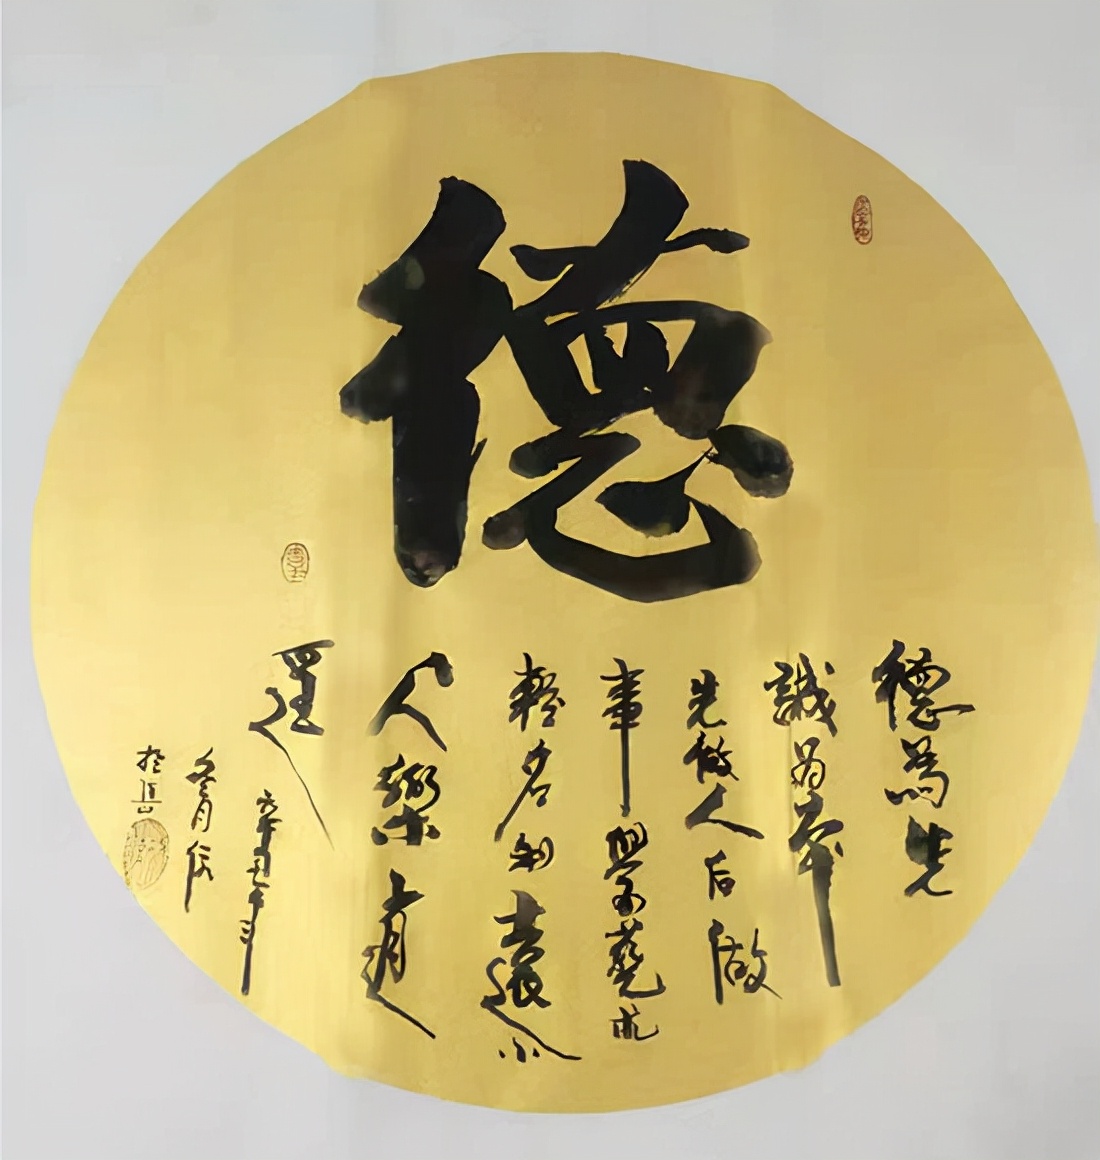 德
德為先
誠為本
先做人后做
事學藝
輕名利遠小
人樂逍
遥
辛丑年
冬月
於